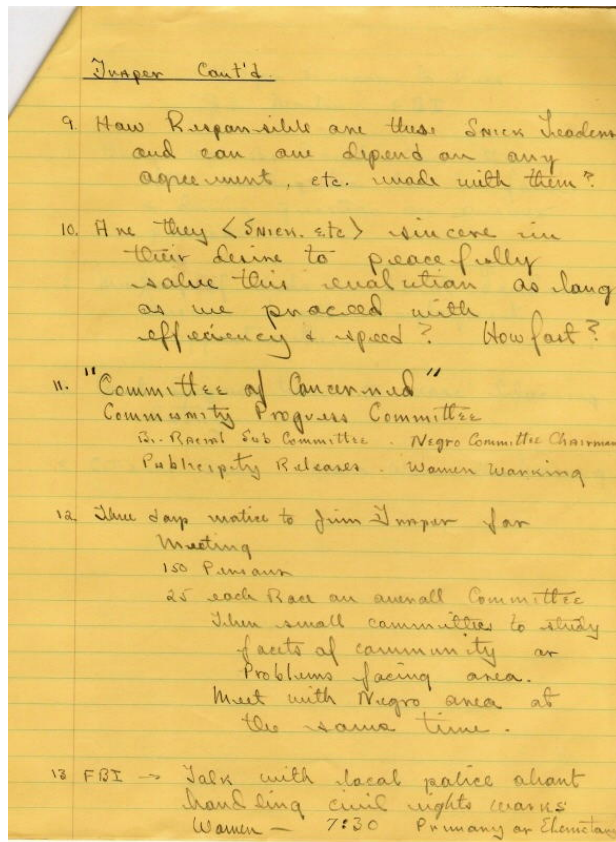 Draper Cont'd.
9. How Responsible are these Snick Leaders
and can one depend on any
agreement, etc. made with them?
10. Are they <Snick. etc> sincere in
their desire to peacefully
solve this evolution as long
as we proceed with
efficiency & speed? How fast?
11. "Committee of Concerned"
Community Progress Committee
Bi-Racial Sub Committee. Negro Committee Chairman
Releases. Women Working
12 Three days notice to Jim Draper for
Meeting
150 Persons
25 each Race on overall Committee
Then small committees to study
facets of community or
Problems facing area.
Meet with Negro area at
the same time.
13 FBI → Talk with local police about
handling civil rights works
Women — 7:30 Primary or